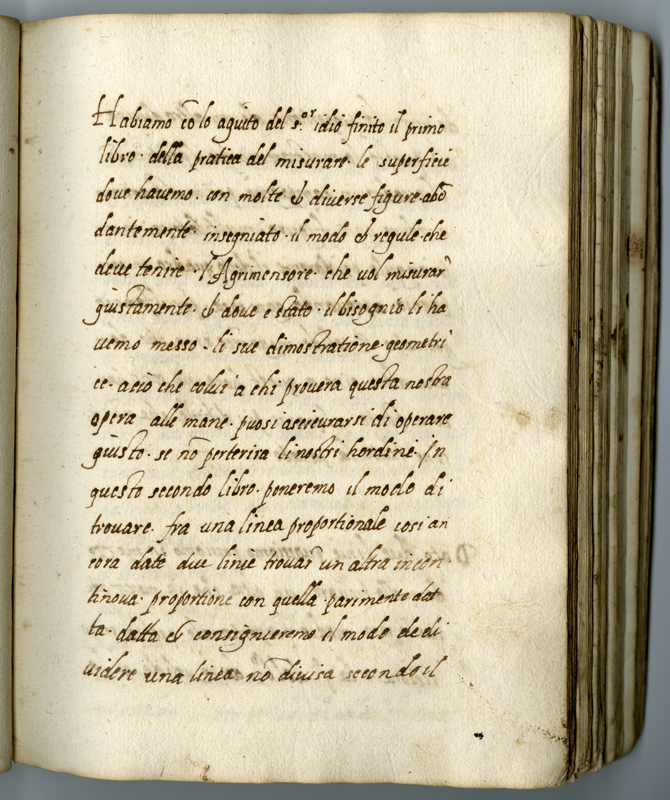 Habiamo cō lo aguito del s.ᵒʳ idio finito il primo
libro · della pratica del misurare · le superficie
dove havemo · con molte & diverse figure · abō
dantemente · insegniato · il modo & regule · che
deve tenire · l'Agrimensore · che vol misurar
giustamente · & dove e stato · il bisognio li ha
vemo messo · li sue dimostratione · geometri
ce · aciò che colui a chi provera questa nostra
opera alle mane · puosi asicurarsi di operare
giusto · se nō perterira li nostri hordine · In
questo secondo libro · poneremo il modo di
trouare · fra una linea proportionale cosi an
cora date due linie trouar un altra in con
tinova · proportione con quella · parimente dat
ta · datta & consignieremo il modo de di
videre una linea nō divisa secondo il